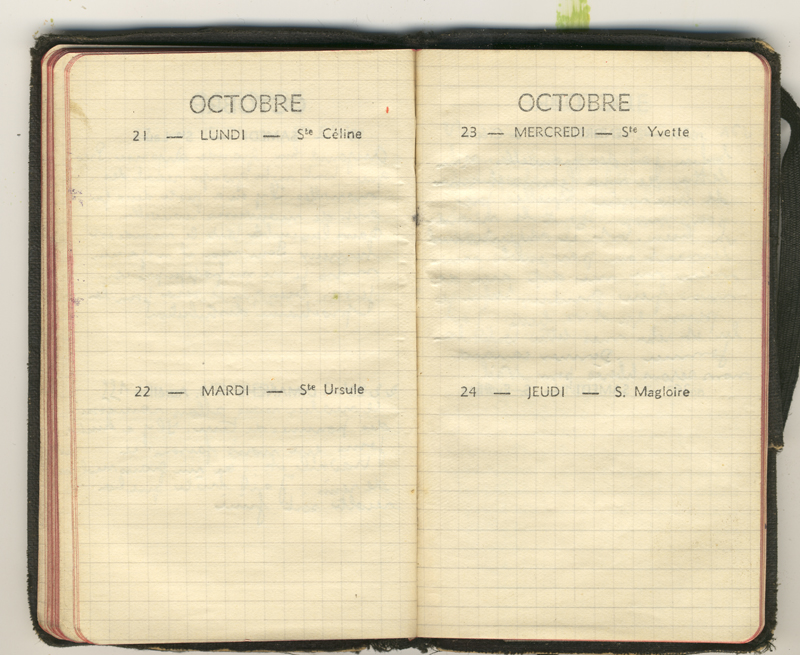 OCTOBRE
21 — LUNDI — Ste Céline
22 — MARDI — Ste Ursule
OCTOBRE
23 — MERCREDI — Ste Yvette
24 — JEUDI — S. Magloire